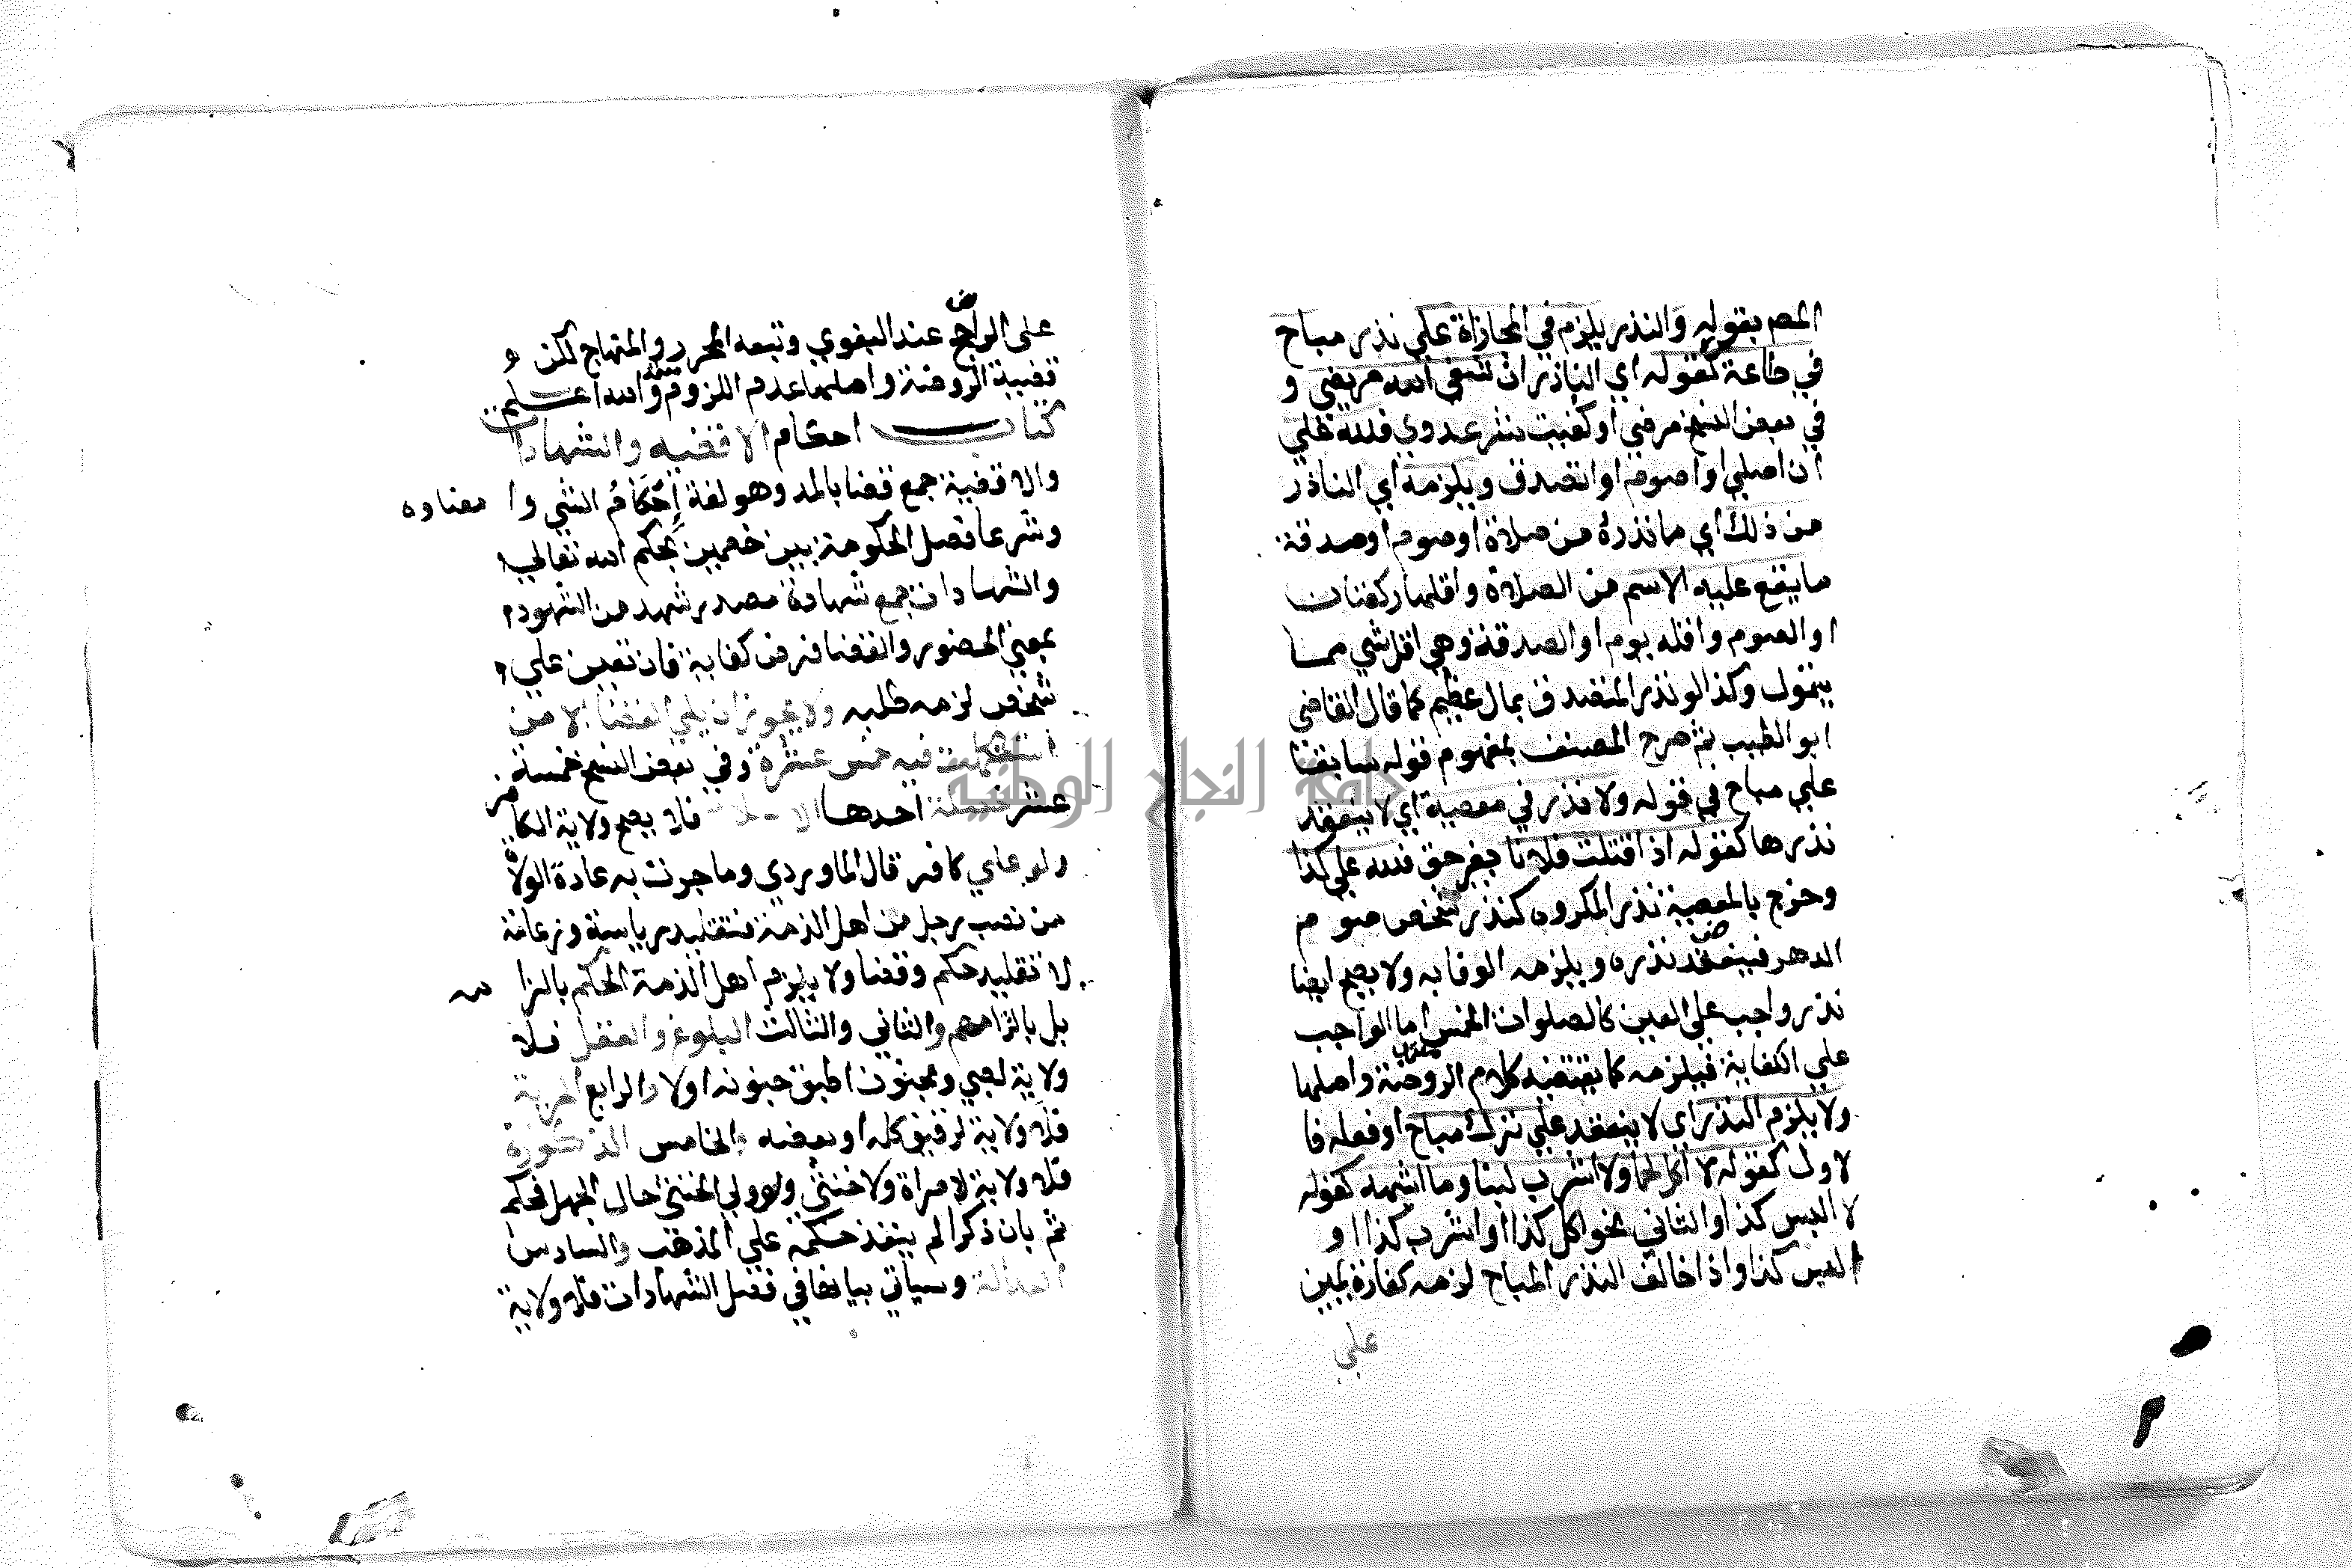 المصم بقوله والنذر يلزم في المجازاة علي نذر مباح
في طاعة كقوله اي الناذر ان شفي الله مريضي و
في بعض النسخ مرضي او كفيت شر عدوي فلله علي
ان اصلي او اصوم او اتصدق ويلزمه اي الناذر
من ذلك اي مما نذره من صلاة او صوم او صدقة
ما يقع عليه الاسم من الصلاة واقلها ركعتان
او الصوم واقله يوم او الصدقة وهي اقل شي مما
يتمول وكذا لو نذر التصدق بمال عظيم كما قال القاضي
ابو الطيب ثم صرح المصنف بمفهوم قوله سابقا
علي مباح في قوله ولا نذر في معصية اي لا ينعقد
نذرها كقوله اذا قتلت فلانا بغير حق فلله علي كذا
وخرج بالمعصية نذر المكروه كنذر شخص صوم
الدهر فينعقد نذره ويلزمه الوفا به ولا يصح ايضا
نذر واجب علي العين كالصلوات الخمس اما الواجب
علي الكفاية فيلزمه كما يقتضيه كلام الروضة واصلها
ولا يلزم النذر اي لا ينعقد علي ترك مباح او فعله فا
لاول كقوله لا اكل لحما ولا اشرب لبنا وما اشبهه كقوله
لا البس كذا والثاني نحو اكل كذا او اشرب كذا ا و
البس كذا واذا خالف النذر المباح لزمه كفارة يمين
علي
على الراجح عند البغوي وتبعه المحرر والمنهاج لكن
قضية الروضة واصلها عدم اللزوم والله اعلم
كتاب احكام الاقضيه والشهادات
والاقضية جمع قضا بالمد وهو لغة إحكام الشي وا مضاوه
وشرعا فصل الحكومة بين خصمين بحكم الله تعالي
والشهادات جمع شهادة مصدر شهد من الشهود
بمعني الحضور والقضا فرض كفاية فان تعين علي
شخص لزمه طلبه ولا يجوز ان يلي القضا الا من
استكملت فيه خمس عشرة وفي بعض النسخ خمسة
عشر خصلة احدها الاسلام فلا يصح ولاية الكافر
ولو علي كافر قال الماوردي وما جرت به عادة الولاة
من نصب رجل من اهل الذمة فتقليد رياسة وزعامة
لا تقليد حكم وقضا ولا يلزم اهل الذمة الحكم بالزا مه
بل بالتزامهم والثاني والثالث البلوغ والعقل فلا
ولاية لصبي ومجنون اطبق جنونه اولا والرابع الحرية
فلا ولاية لرقيق كله او بعضه والخامس الذكورة
فلا ولاية لامراة ولا خنثي ولو ولي الخنثي حال الجهل فحكم
ثم بان ذكرا لم ينفذ حكمه علي المذهب والسادس
العدالة وسياتي بيانها في فصل الشهادات فلا ولاية
جامعة النجاح الوطنية